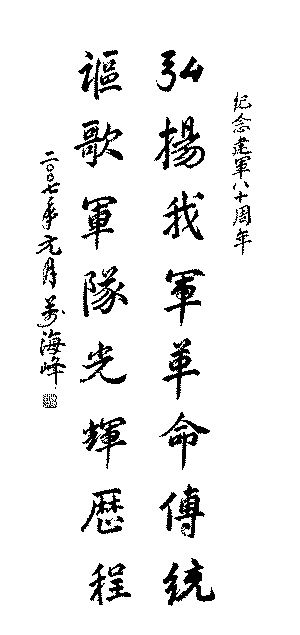 纪念建军八十周年
弘揚我軍革命傳統
謳歌軍隊光輝歷程
二〇〇七年元月 万海峰